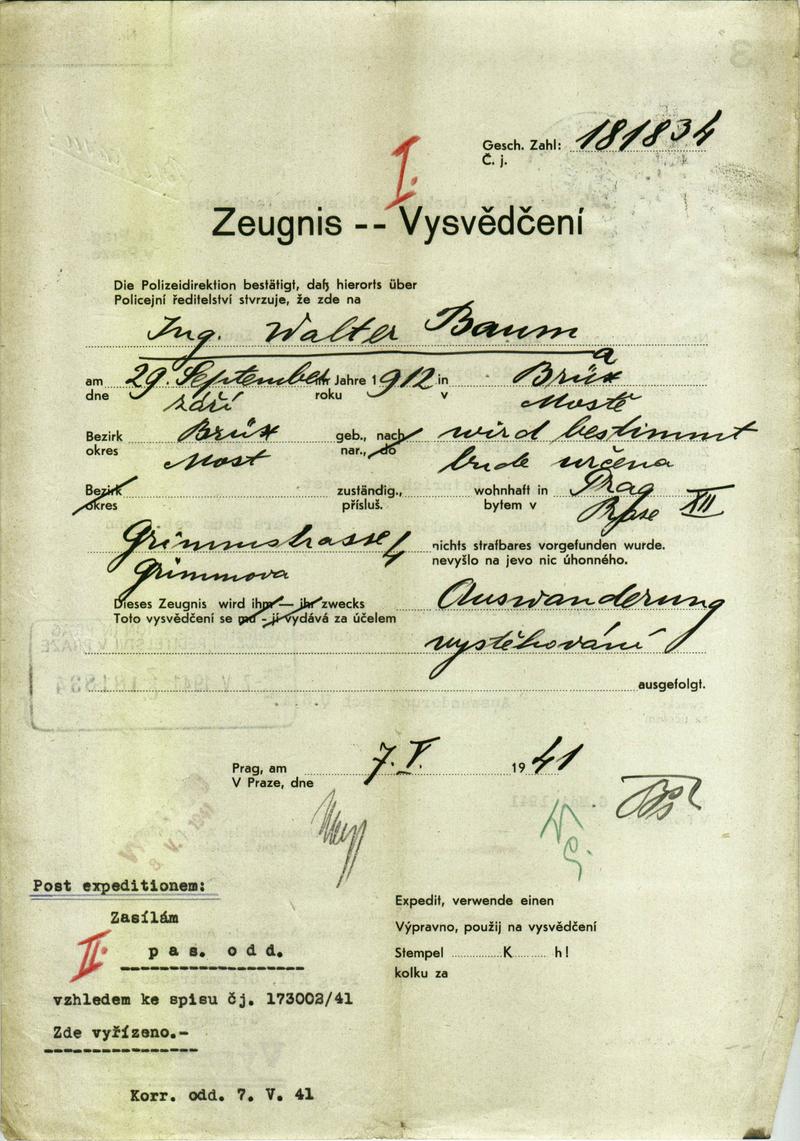 Gesch. Zahl: 181834
Č. j.
I.
Zeugnis -- Vysvědčení
Die Polizeidirektion bestätigt, daß hierorts über
Policejní ředitelství stvrzuje, že zde na
Ing. Walter Baum
a
am 29. September im Jahre 1912 in Brüx
dne září roku v Mostě
Bezirk Brüx geb., nach wird bestimmt
okres Most nar., do bude určena
Bezirk zuständig., wohnhaft in Prag XII
okres přísluš. bytem v Praze
Grimmstrasse 4 nichts strafbares vorgefunden wurde.
Grimmova nevyšlo na jevo nic úhonného.
Dieses Zeugnis wird ihm — ihr zwecks Auswanderung
Toto vysvědčení se mu - jí vydává za účelem
vystěhování
ausgefolgt.
Prag, am 7. V. 1941
V Praze, dne
Post expeditionem:
Zasílám
II. pas. odd.
vzhledem ke spisu čj. 173002/41
Zde vyřízeno.-
Korr. odd. 7. V. 41
Expedit, verwende einen
Výpravno, použij na vysvědčení
Stempel K h!
kolku za